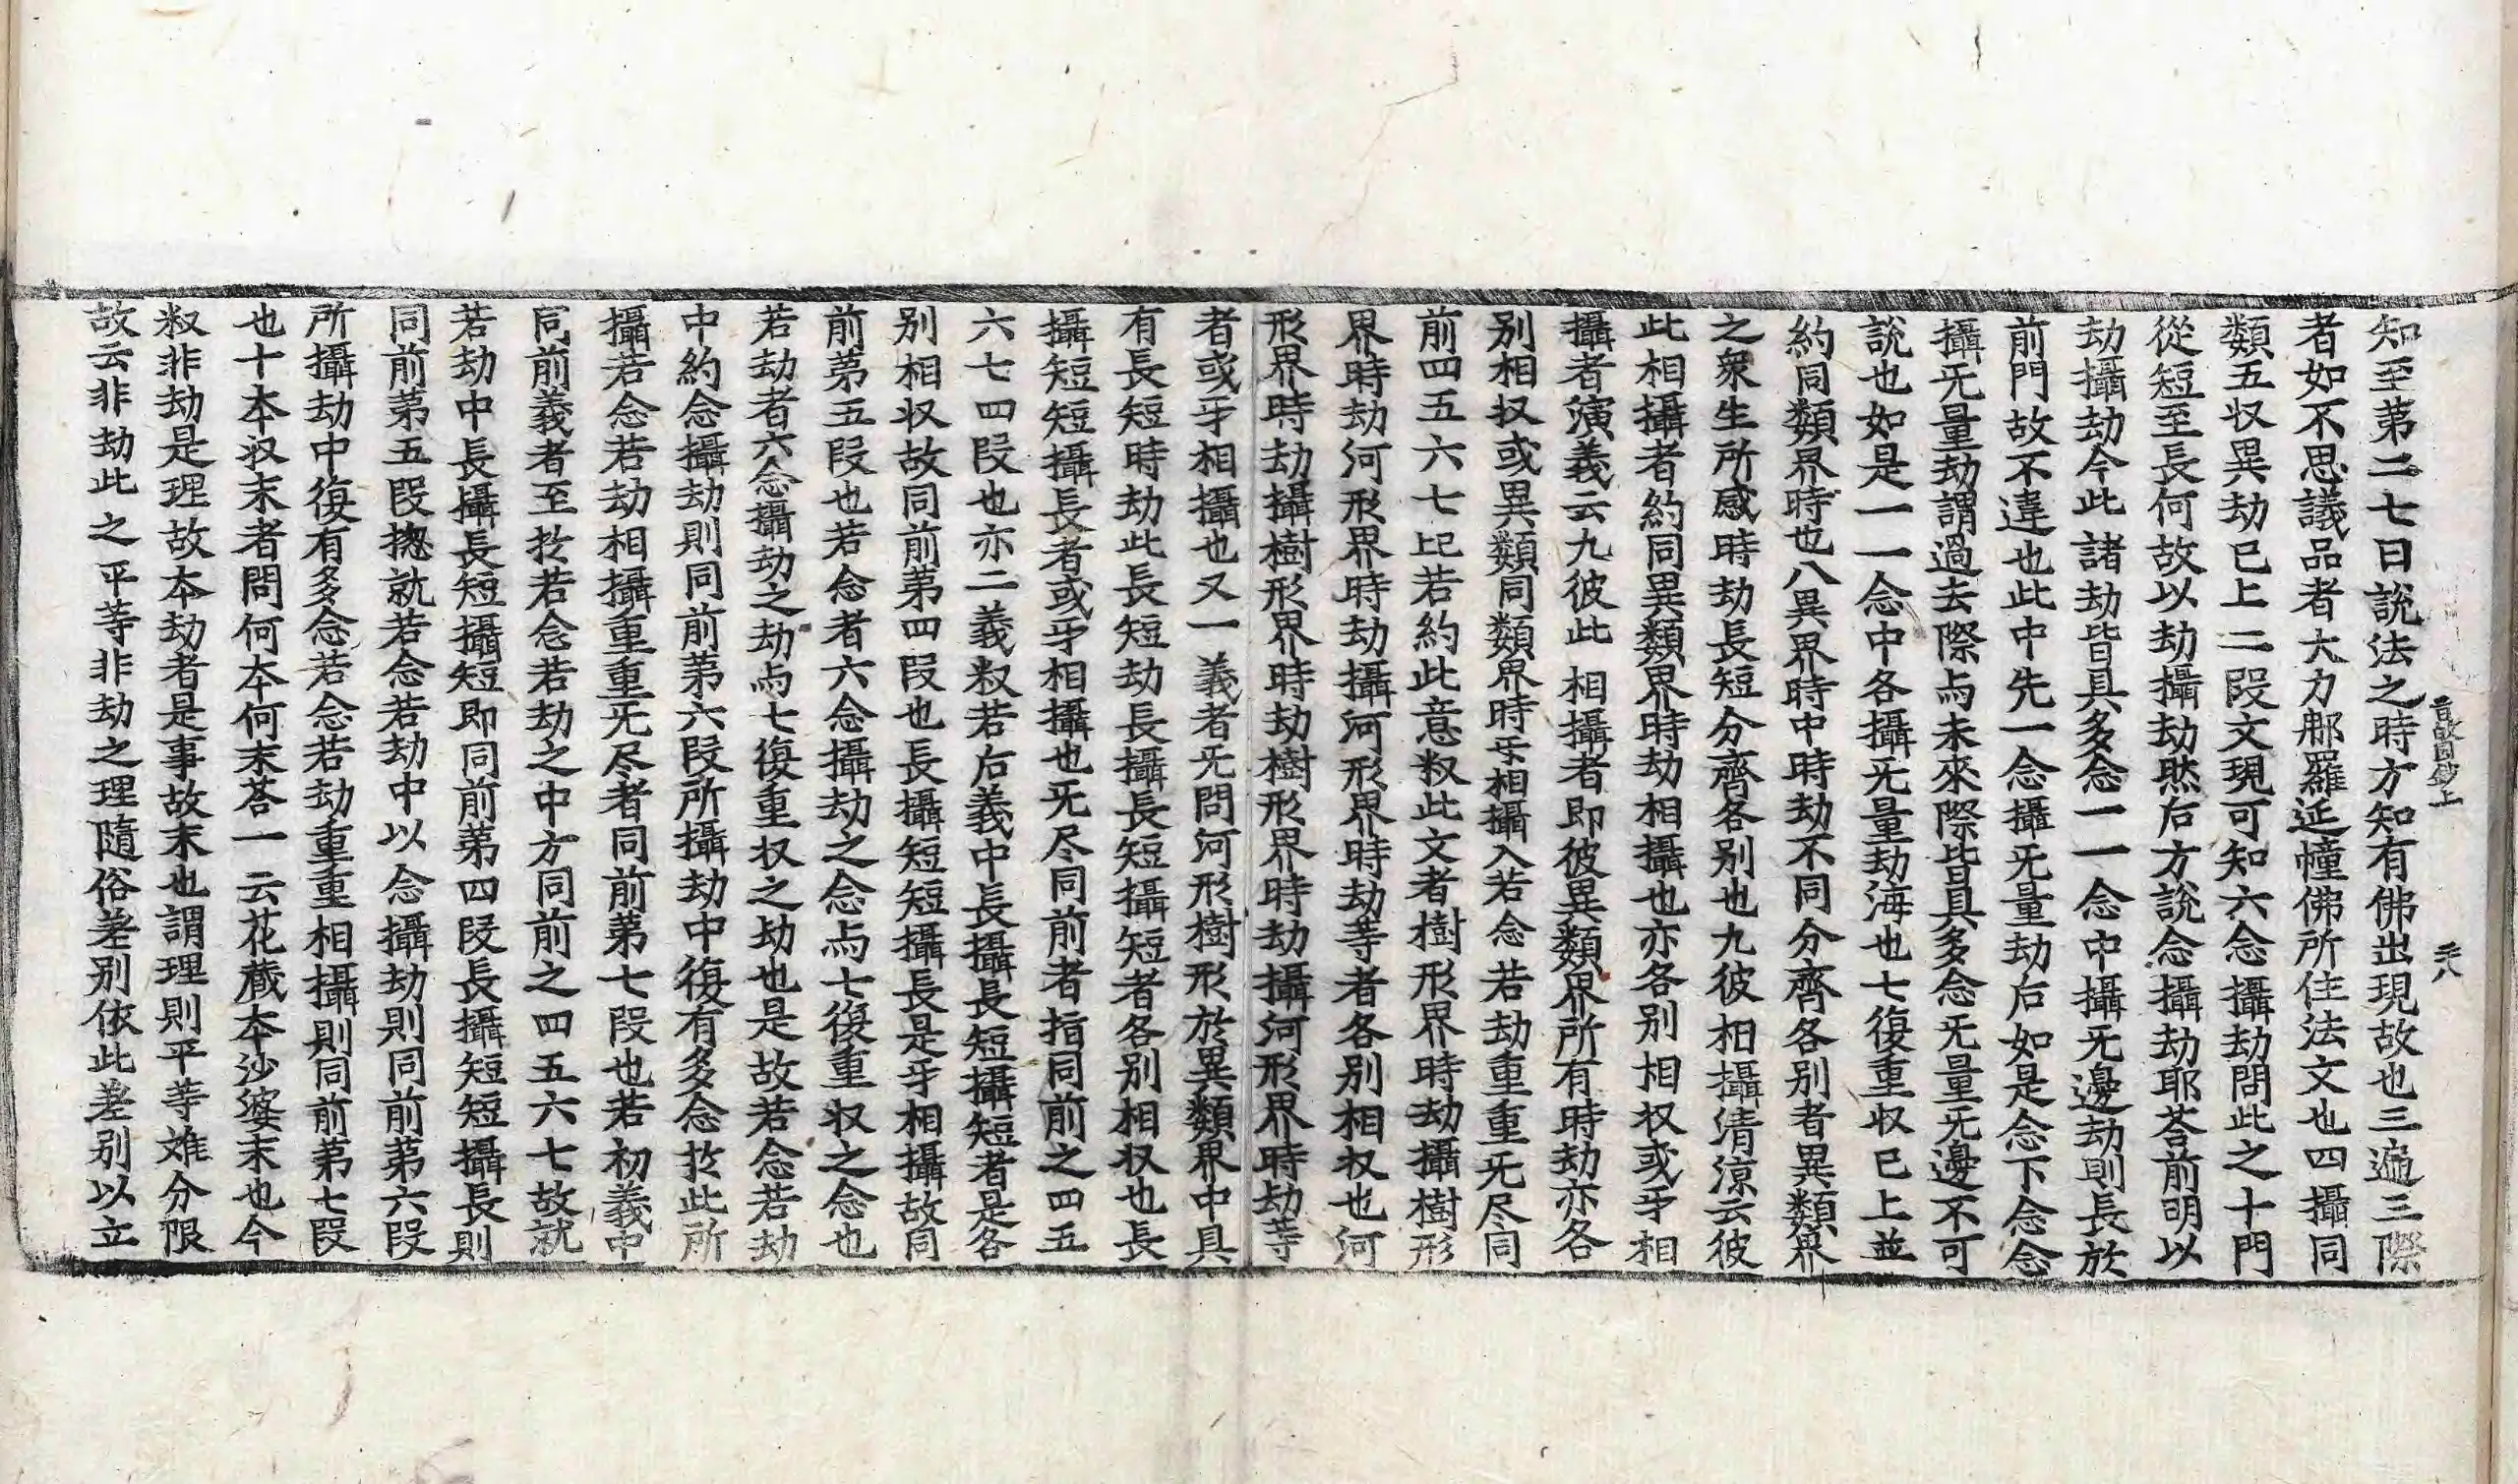 知至第二七日說法之時方知有佛出現故也三遍三際
者如不思議品者大力那羅延幢佛所住法文也四攝同
類五収異劫已上二段文現可知六念攝劫問此之十門
從短至長何故以劫攝劫然后方說念攝劫耶荅前明以
劫攝劫今此諸劫皆具多念一一念中攝旡邊劫則長於
前門故不違也此中先一念攝旡量劫后如是念下念念
攝旡量劫謂過去際与未來際皆具多念旡量旡邊不可
說也如是一一念中各攝旡量劫海也七復重収已上並
約同類界時也八異界時中時劫不同分齊各别者異類界
之衆生所感時劫長短分齊各别也九彼相攝清涼云彼
此相攝者約同異類界時劫相攝也亦各别相収或乎相
攝者演義云九彼此相攝者即彼異類界所有時劫亦各
别相収或異類同類界時乎相攝入若念若劫重重旡尽同
前四五六七記若約此意㕘此文者樹形界時劫攝樹形
界時劫河形界時劫攝河形界時劫等者各别相収也河
形界時劫攝樹形界時劫樹形界時劫攝河形界時劫等
者或乎相攝也又一義者旡問河形樹形於異類界中具
有長短時劫此長短劫長攝長短攝短者各别相収也長
攝短短攝長者或乎相攝也旡尽同前者指同前之四五
六七四段也亦二義㕘若后義中長攝長短攝短者是各
别相収故同前第四段也長攝短短攝長是乎相攝故同
前第五段也若念者六念攝劫之念与七復重収之念也
若劫者六念攝劫之劫与七復重収之劫也是故若念若劫
中約念攝劫則同前第六段所攝劫中復有多念扵此所
攝若念若劫相攝重重旡尽者同前第七段也若初義中
同前義者至扵若念若劫之中方同前之四五六七故就
若劫中長攝長短攝短即同前第四段長攝短短攝長則
同前第五段揔就若念若劫中以念攝劫則同前第六段
所攝劫中復有多念若念若劫重重相攝則同前第七段
也十本収末者問何本何末荅一云花蔵本沙婆末也今
㕘非劫是理故本劫者是事故末也謂理則平等难分限
故云非劫此之平等非劫之理隨俗差别依此差别以立